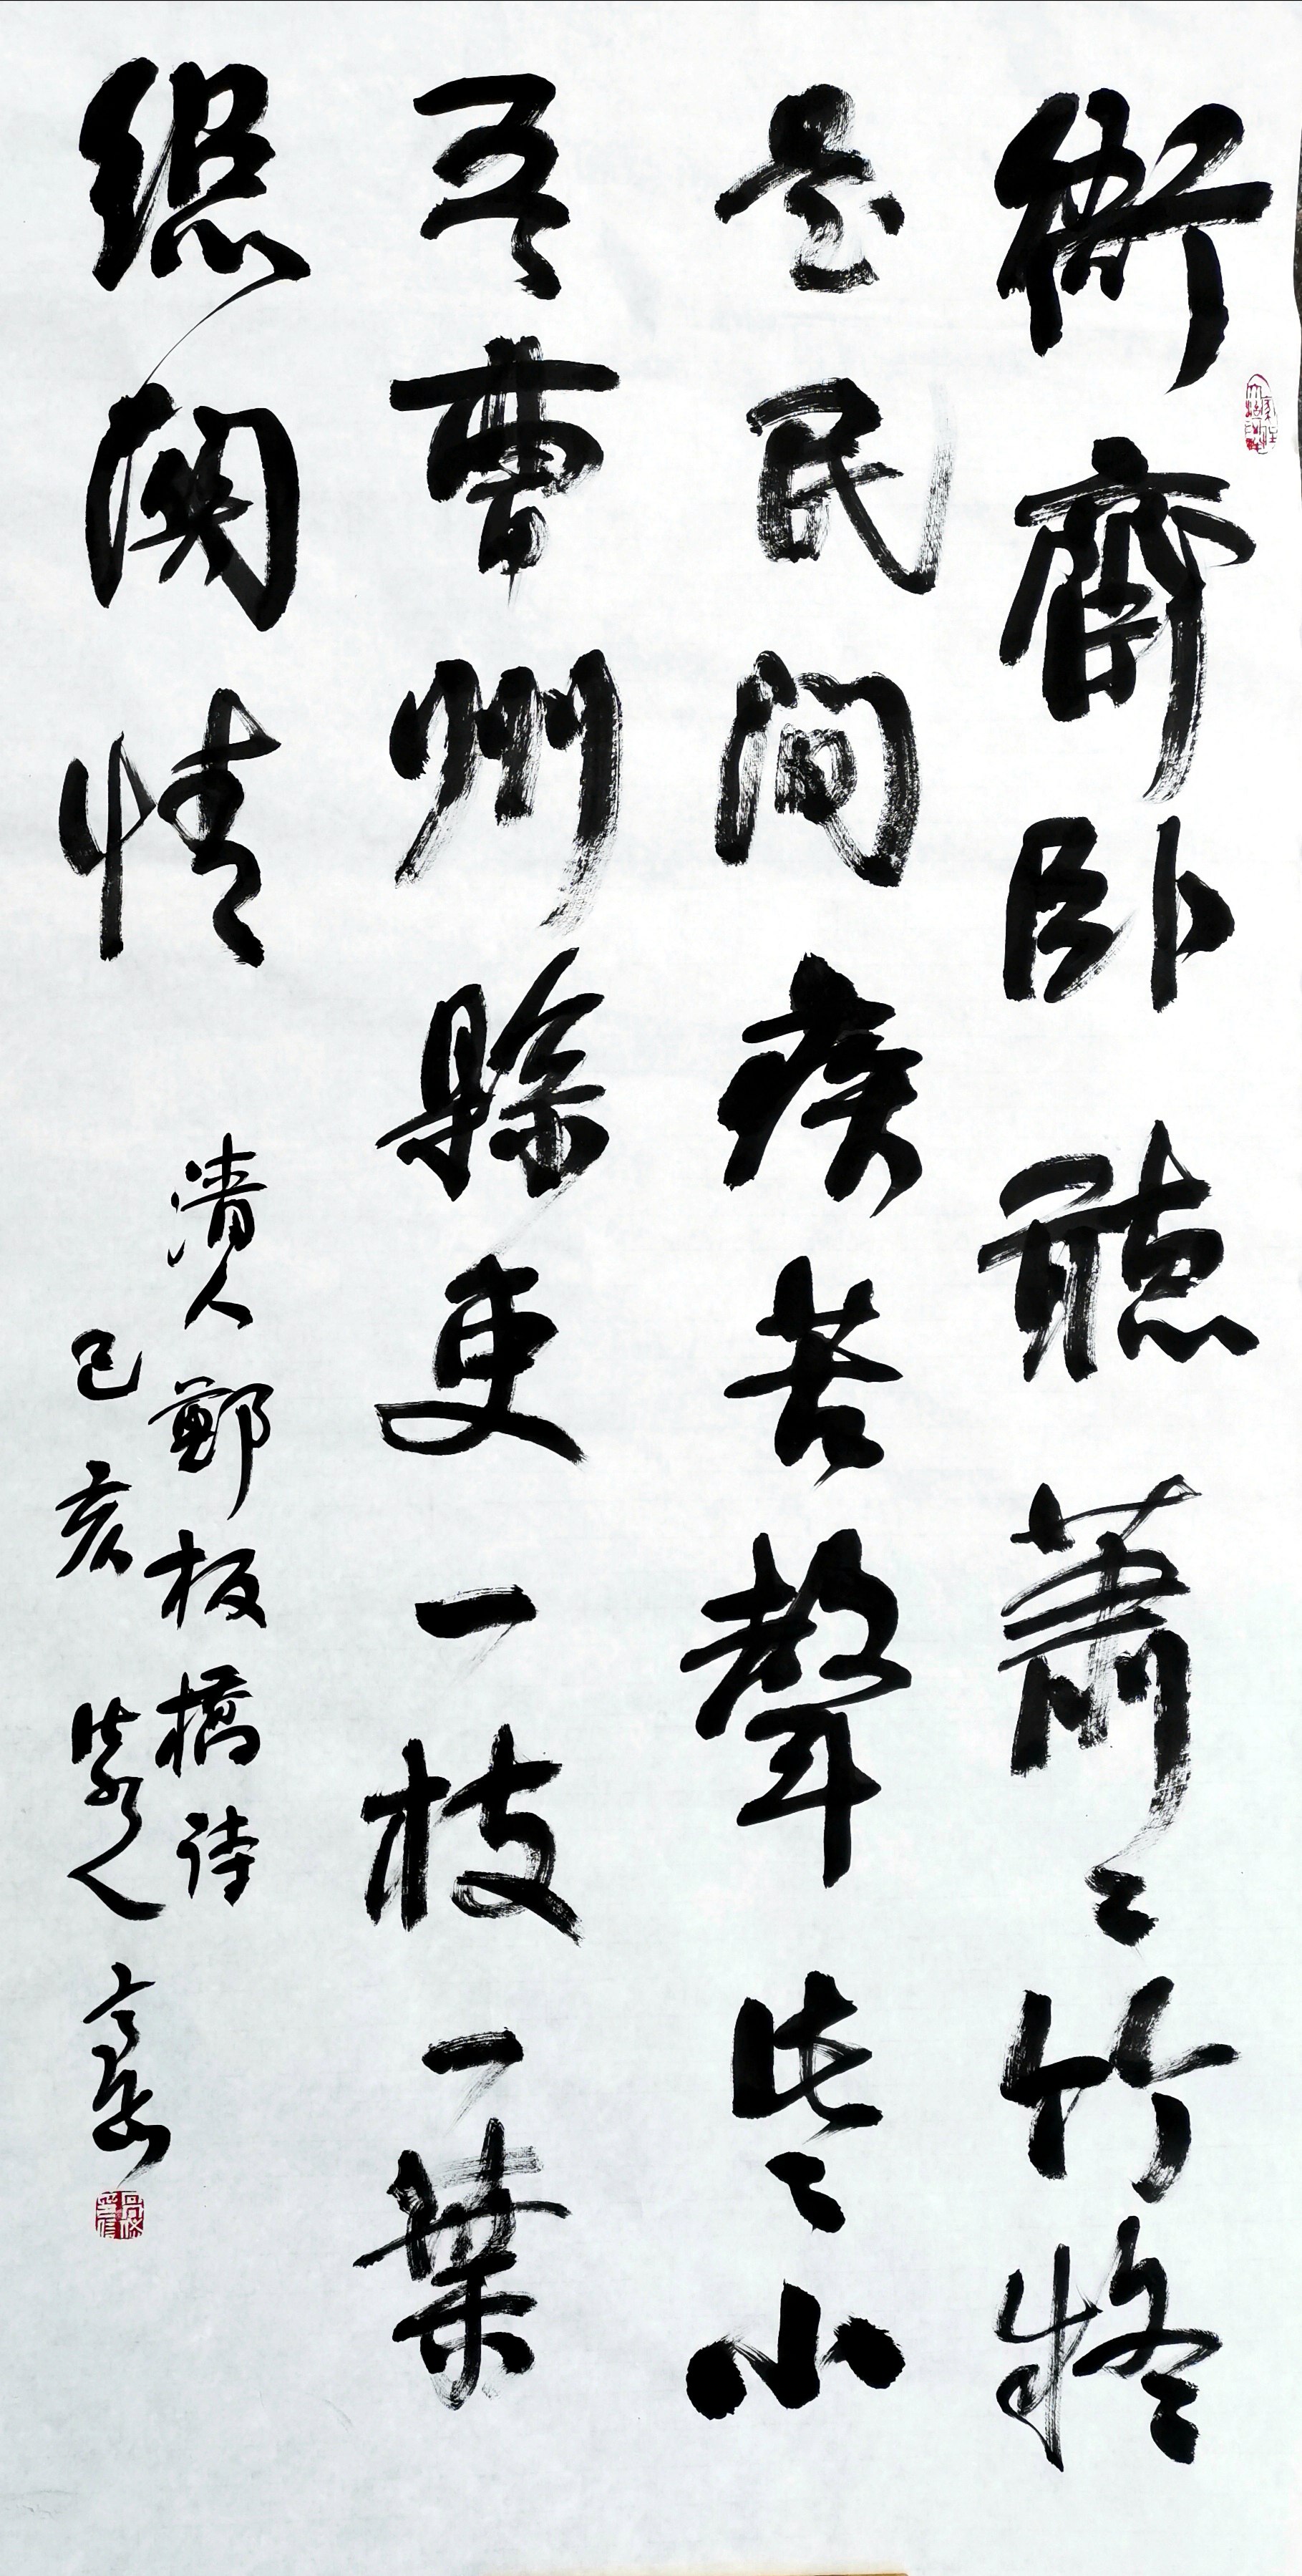 衙齋卧聽蕭〻竹疑
是民間疾苦聲些小
吾曹州縣吏一枝一葉
總關情
清人鄭板橋詩
己亥